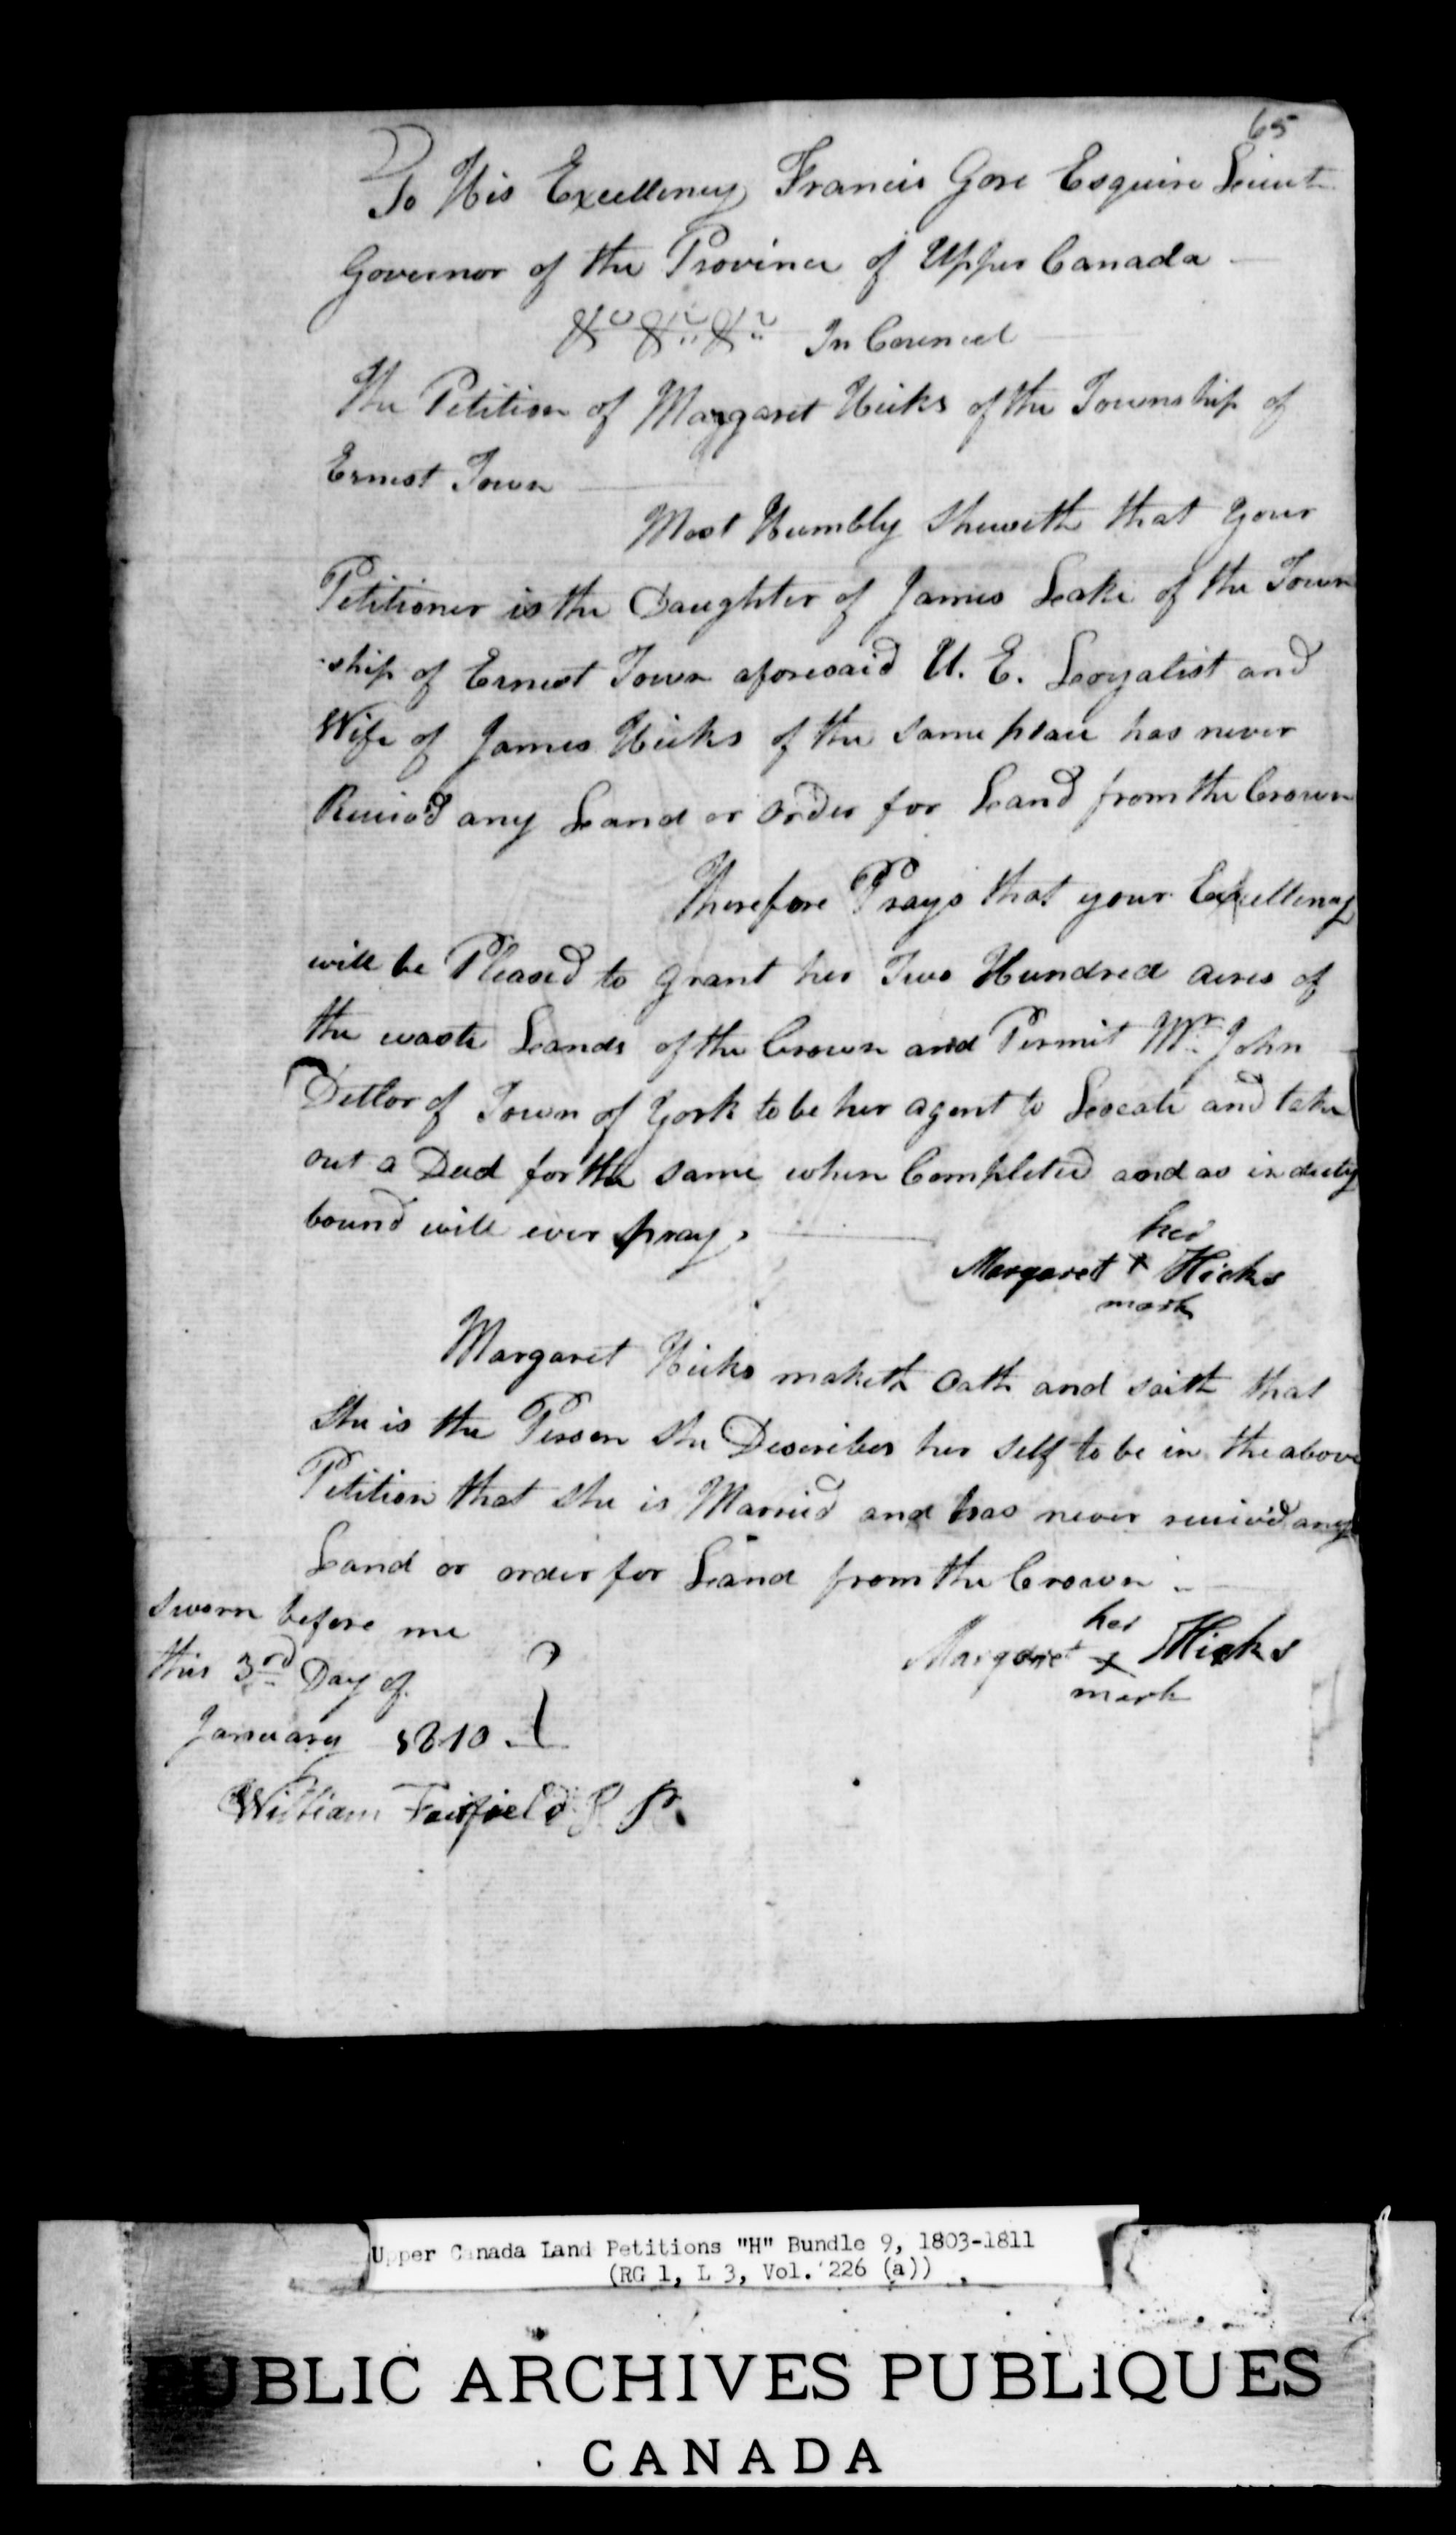 65
To His Excellency Francis Gore Esquire Lieut
Governor of the Province of Upper Canada
&c &c &c In Council
The Petition of Margaret Hicks of the Township of
Ernest Town
Most Humbly Sheweth that your
Petitioner is the Daughter of James Lake of the Town
-ship of Ernest Town aforesaid U. E. Loyalist and
Wife of James Hicks of the same place has never
Receiv'd any Land or order for Land from the Crown
Therefore Prays that your Excellency
will be Pleas'd to grant her Two Hundred acres of
the waste Lands of the Crown and Permit Mr. John
Detlor of Town of York to be her agent to Locate and take
out a Deed for the same when Completed and as in duty
bound will ever pray.
her
Margaret x Hicks
mark
Margaret Hicks maketh Oath and saith that
She is the Person she Describes her self to be in the above
Petition that she is Married and has never receiv'd any
Land or order for Land from the Crown.
Sworn before me
this 3rd Day of
January 1810
William Fairfield J. P.
her
Margaret x Hicks
mark
Upper Canada Land Petitions "H" Bundle 9, 1803-1811
(RG 1, L 3, Vol. 226 (a))
PUBLIC ARCHIVES PUBLIQUES
CANADA